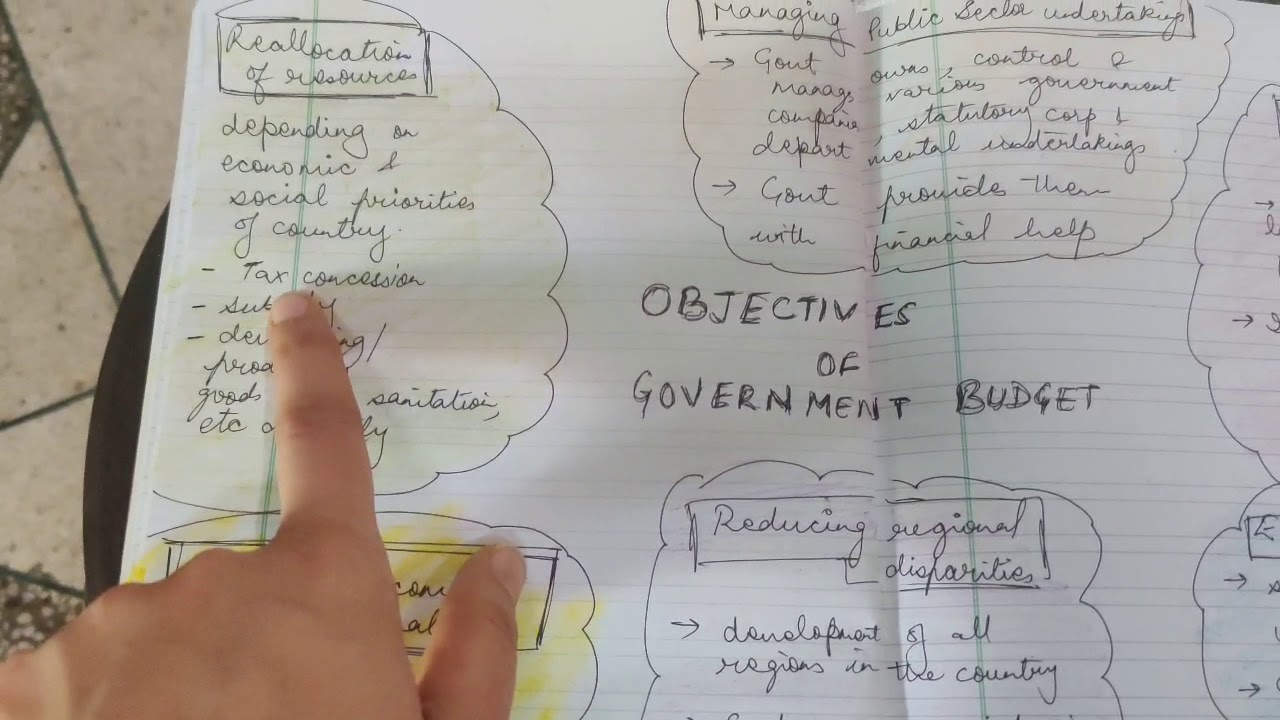 Reallocation
of resources
depending on
economic &
social priorities
of country.
- Tax concession
-
-
goods sanitation,
etc
Managing Public Sector undertakings
→ Gout owns, control &
manags various government
companies, statutory corp &
departmental undertakings
→ Gout provides them
with financial help
OBJECTIVES
OF
GOVERNMENT BUDGET
Reducing regional
disparities
→ development of all
regions in the country
E
→
→